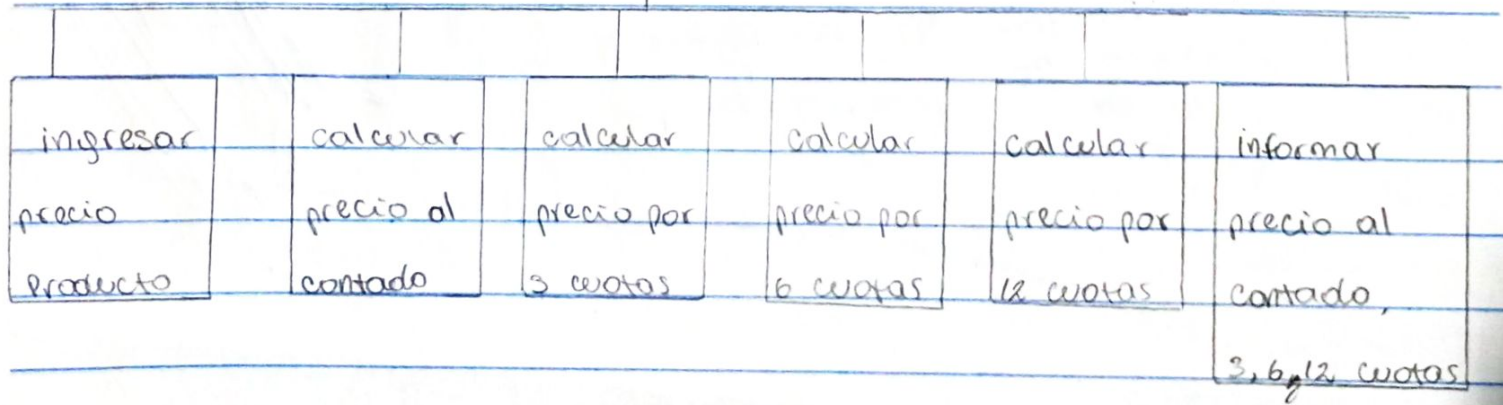 ingresar
precio
producto
calcular
precio al
contado
calcular
precio por
3 cuotas
calcular
precio por
6 cuotas
calcular
precio por
12 cuotas
informar
precio al
contado,
3, 6 y 12 cuotas